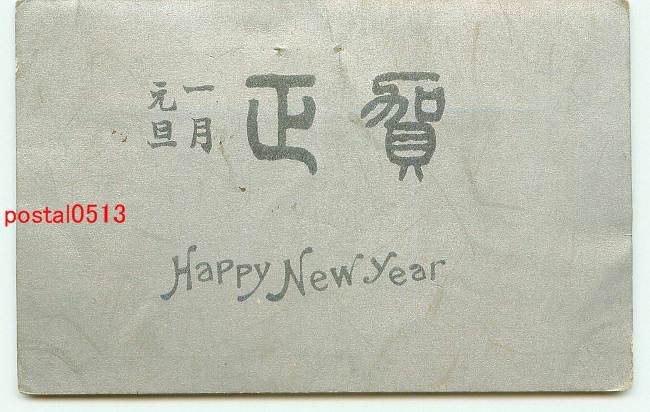 賀正
一月
元旦
Happy New Year
postal0513